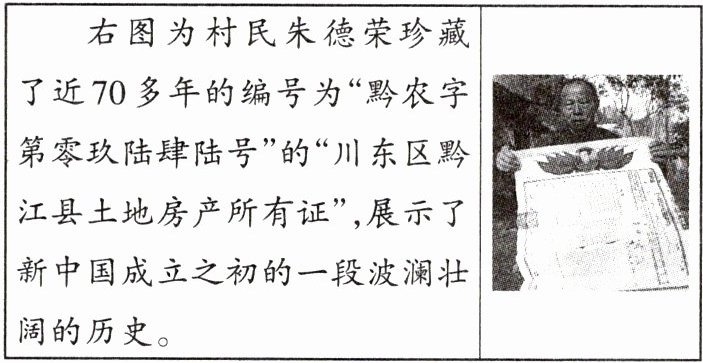 右图为村民朱德荣珍藏
了近70多年的编号为“黔农字
第零玖陆肆陆号”的“川东区黔
江县土地房产所有证”,展示了
新中国成立之初的一段波澜壮
阔的历史。